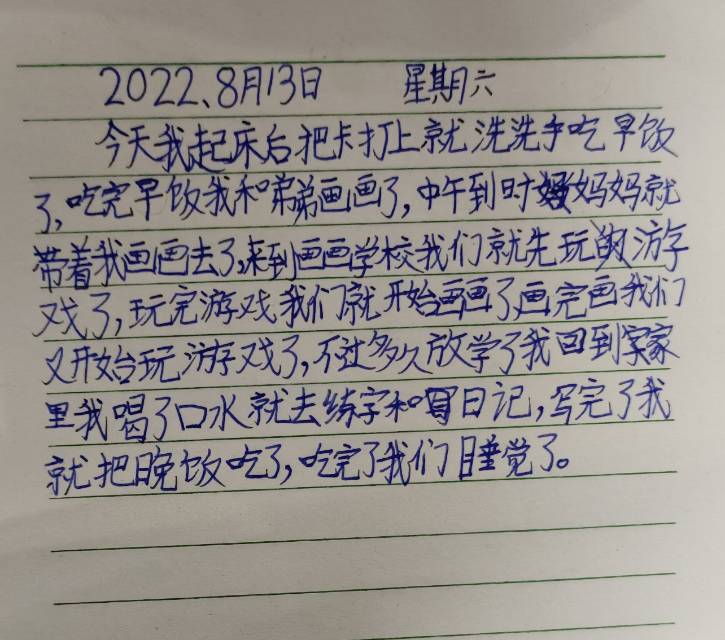 2022、8月13日 星期六
今天我起床后把卡打上就洗洗手吃早饭
了,吃完早饭我和弟弟画画了,中午到时妈妈就
带着我画画去了,来到画画学校我们就先玩的游
戏了,玩完游戏我们就开始画画了画完画我们
又开始玩游戏了,不过多久放学了我回到家
里我喝了口水就去练字和写日记,写完了我
就把晚饭吃了,吃完了我们睡觉了。